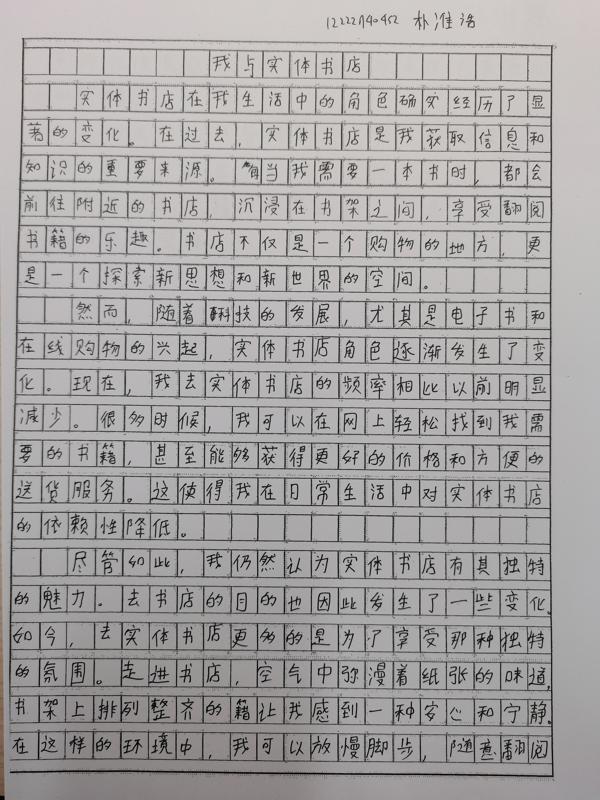 12222740452 朴准浩
我与实体书店
实体书店在我生活中的角色确实经历了显
著的变化。在过去，实体书店是我获取信息和
知识的重要来源。每当我需要一本书时，都会
前往附近的书店，沉浸在书架之间，享受翻阅
书籍的乐趣。书店不仅是一个购物的地方，更
是一个探索新思想和新世界的空间。
然而，随着科技的发展，尤其是电子书和
在线购物的兴起，实体书店角色逐渐发生了变
化。现在，我去实体书店的频率相比以前明显
减少。很多时候，我可以在网上轻松找到我需
要的书籍，甚至能够获得更好的价格和方便的
送货服务。这使得我在日常生活中对实体书店
的依赖性降低。
尽管如此，我仍然认为实体书店有其独特
的魅力。去书店的目的也因此发生了一些变化。
如今，去实体书店更多的是为了享受那种独特
的氛围。走进书店，空气中弥漫着纸张的味道，
书架上排列整齐的籍让我感到一种安心和宁静。
在这样的环境中，我可以放慢脚步，随意翻阅